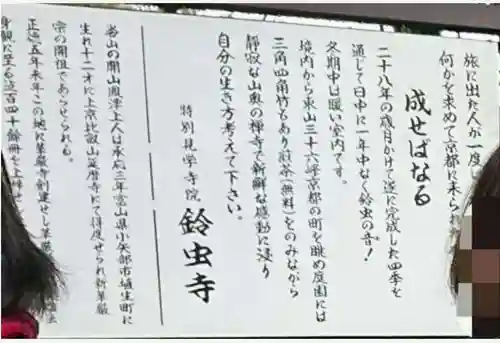 旅に出た人が一度し
何かを求めて京都に来られ
成せばなる
二十八年の歳月かけて遂に完成した四季を
通じて日中に一年中なく鈴虫の音!
冬期中は暖い室内です。
境内から東山三十六峰京都の町を眺め庭園には
三角四角竹もあり煎茶(無料)をのみながら
静寂な山奥の禅寺で新鮮な感動に浸り
自分の生き方考えて下さい。
特別見学寺院 鈴虫寺
当山の開山鳳潭上人は承応三年富山県小矢部市埴生町に
生れ十二才に上京比叡山延暦寺にて得度せられ新華厳
宗の開祖であらせられる。
正徳五年来年この地に華厳寺創建せし華厳
身観に至る迄百四十餘冊を上梓